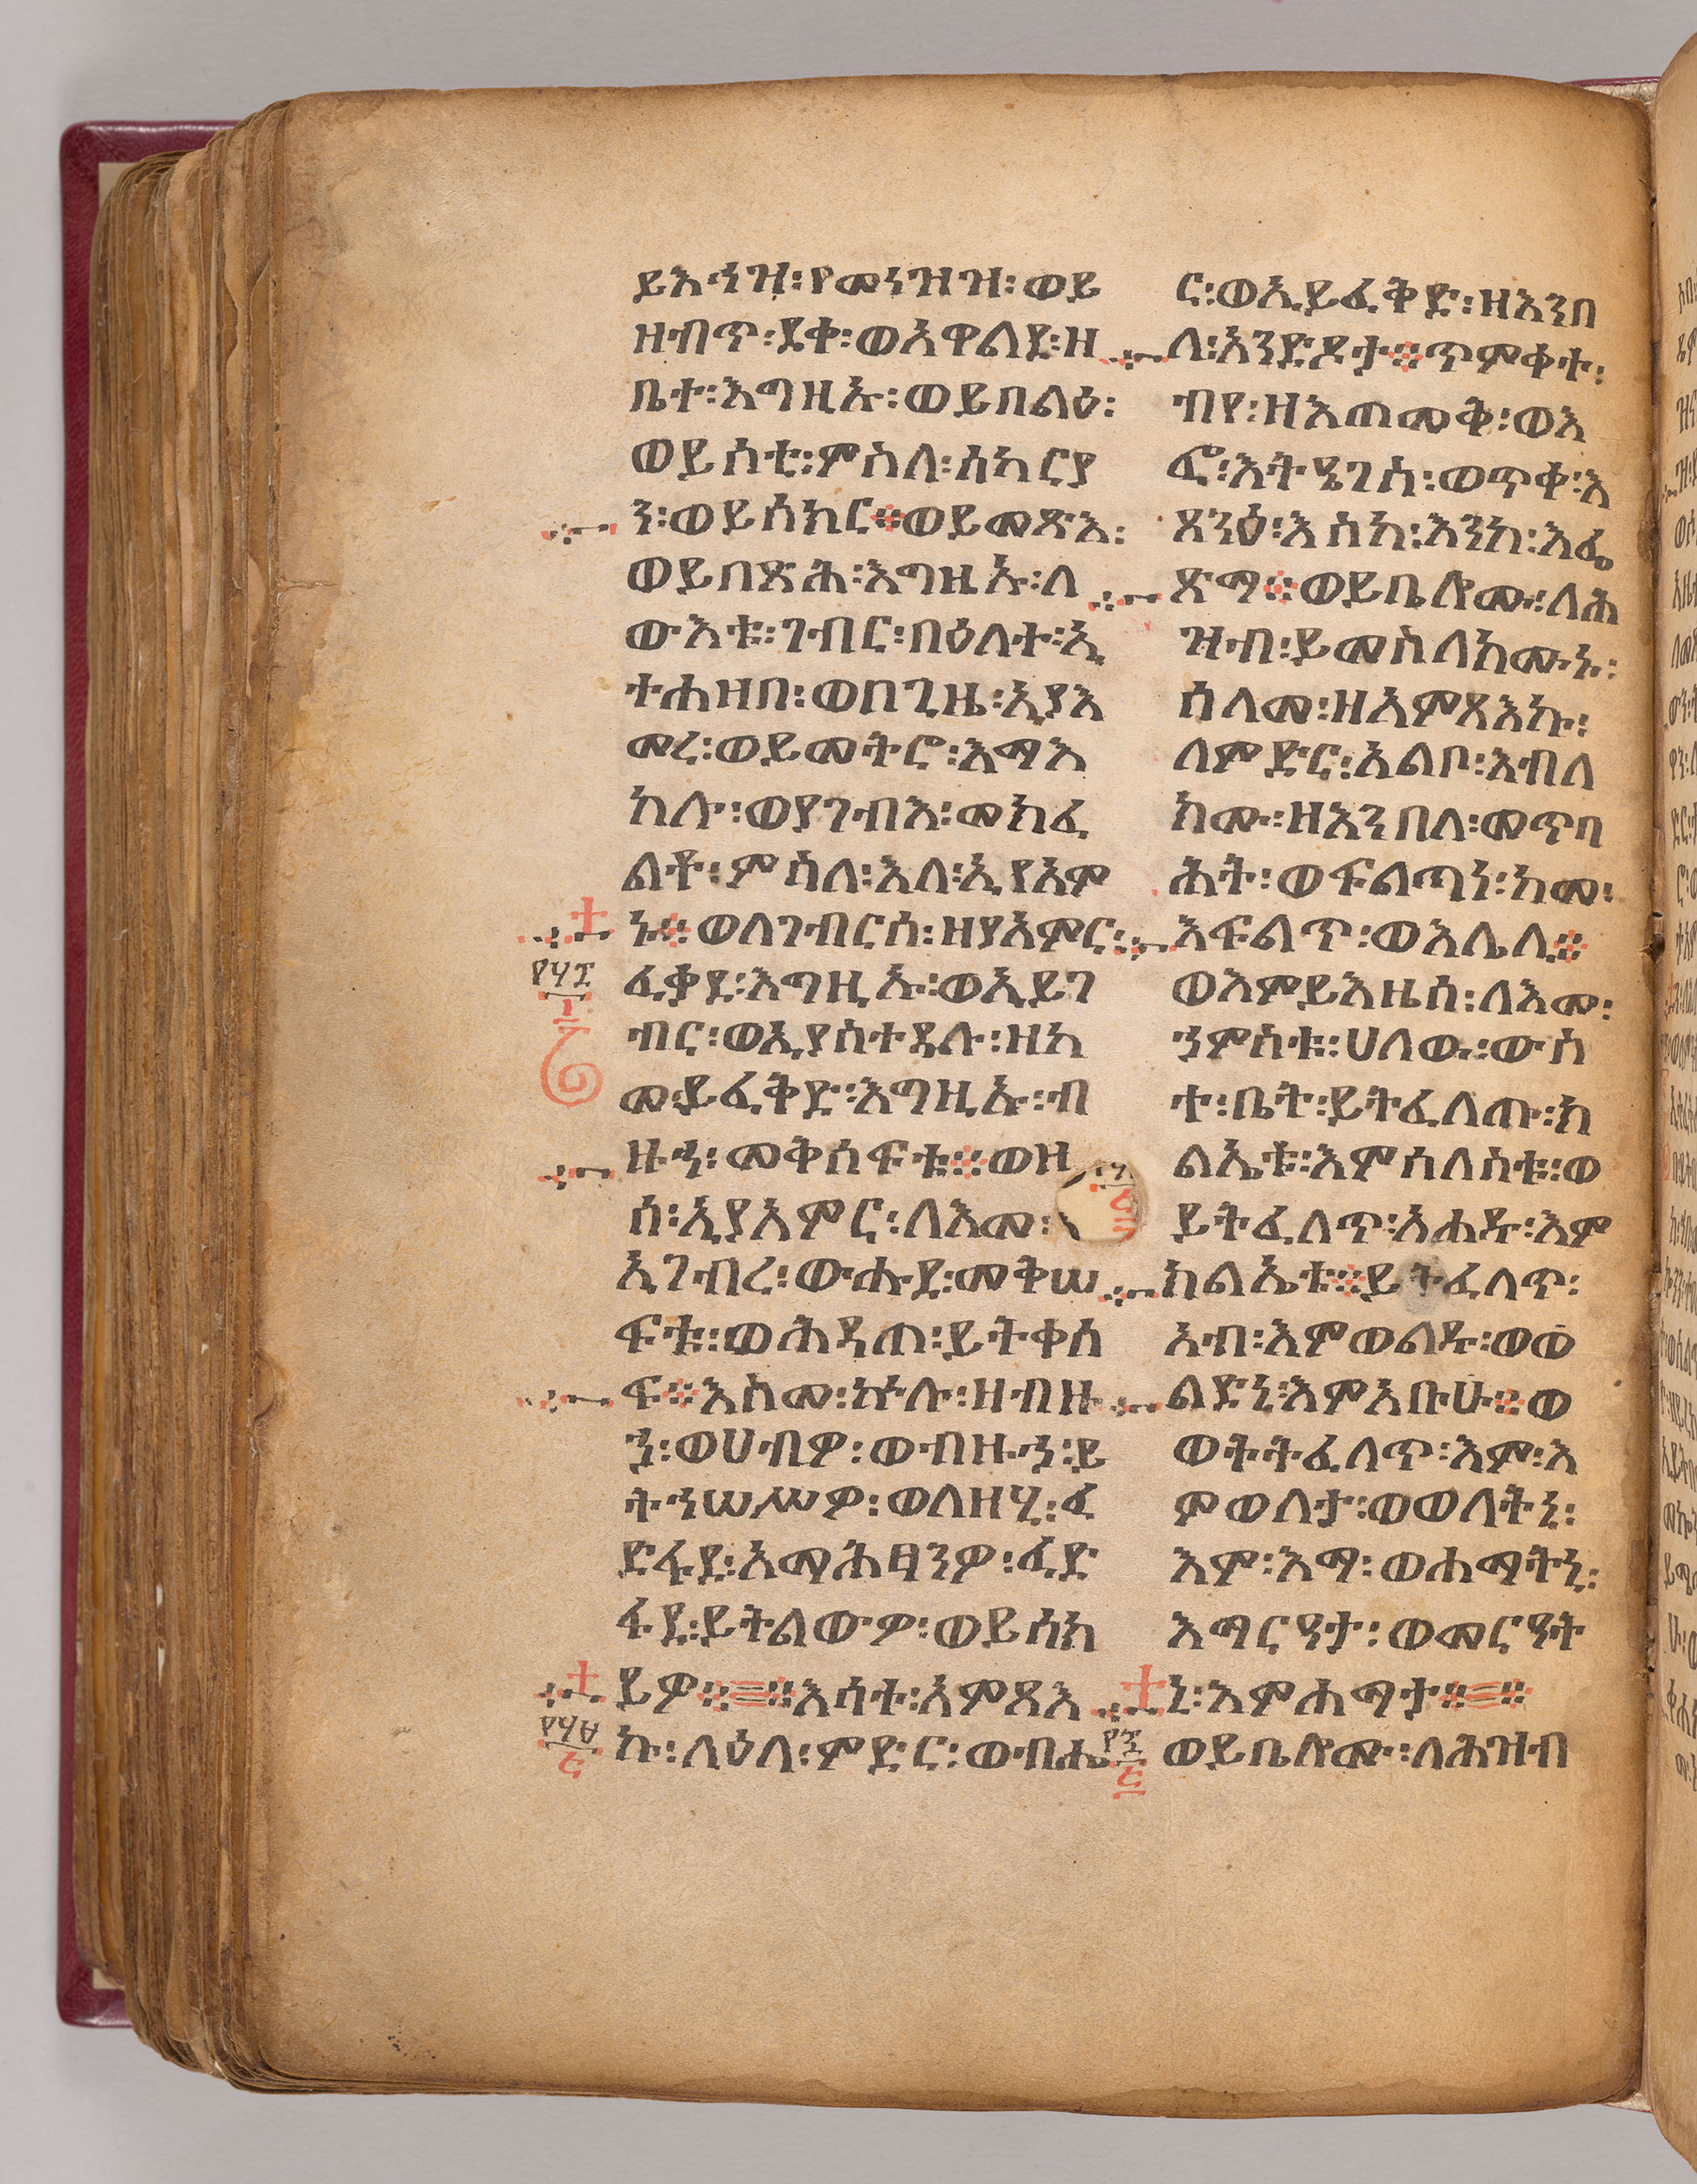 ይእኅዝ፡የመነዝዝ፡ወይ
ዘብጥ፡ደቀ፡ወአዋልደ፡ዘ
ቤተ፡እግዚኡ፡ወይበልዕ፡
ወይሰቲ፡ምስለ፡ሰካርያ
ን፡ወይሰክር፨ወይመጽእ፡
ወይበጽሕ፡እግዚኡ፡ለ
ውእቱ፡ገብር፡በዕለተ፡ኢ
ተሐዘበ፡ወበጊዜ፡ኢያእ
መረ፡ወይመትሮ፡እማእ
ከሉ፡ወያገብእ፡መክፈ
ልቶ፡ምስለ፡እለ፡ኢየአም
ኑ፨ወለገብርሰ፡ዘያአምር፡
ፈቃደ፡እግዚኡ፡ወኢይገ
ብር፡ወኢያስተዳሉ፡ዘከ
መ፡ይፈቅድ፡እግዚኡ፡ብ
ዙኅ፡መቅሰፍቱ፨ወዝ
ሰ፡ኢያአምር፡ለእመ፡
ኢገብረ፡ውሑደ፡መቅሠ
ፍቱ፡ወሕዳጠ፡ይትቀሰ
ፍ፨እስመ፡ኵሉ፡ዘብዙ
ኅ፡ወሀብዎ፡ወብዙኅ፡ይ
ትኀሠሥዎ፡ወለዘሂ፡ፈ
ድፋደ፡አማሕፀንዎ፡ፈድ
ፋደ፡ይትልውዎ፡ወይሰክ
ይዎ፨እሳተ፡አምጻእ
ኩ፡ለዕለ፡ምድር፡ወብሔ
ር፡ወኢይፈቅድ፡ዘእንበ
ለ፡አንድዶታ፨ጥምቀተ፡
ብየ፡ዘእጠመቅ፡ወእ
ፎ፡እትዔገስ፡ወጥቀ፡እ
ጸንዕ፡እስከ፡እንከ፡እፌ
ጽማ፨ወይቤሎሙ፡ለሕ
ዝብ፡ይመስለክሙኑ፡
ሰላመ፡ዘአምጻእኩ፡
ለምድር፡አልቦ፡እብለ
ክሙ፡ዘእንበለ፡መጥባ
ሕት፡ወፍልጣነ፡ከመ፡
እፍልጥ፡ወእሌሊ፨
ወእምይእዜሰ፡ለእመ፡
ኀምስቱ፡ሀለው፡ውስ
ተ፡ቤት፡ይትፈለጡ፡ክ
ልኤቱ፡እምሰለስቱ፡ወ
ይትፈለጥ፡አሐዱ፡እም
ክልኤቱ፨ይትፈለጥ፡
አብ፡እምወልዱ፡ወወ
ልድኒ፡እምአቡሁ፨ወ
ወትትፈለጥ፡እም፡እ
ምወለታ፡ወወለትኒ፡
እም፡እማ፡ወሐማትኒ፡
እማርዓታ፡ወመርዓት
ኒ፡እምሐማታ፨
ወይቤሎሙ፡ለሕዝብ